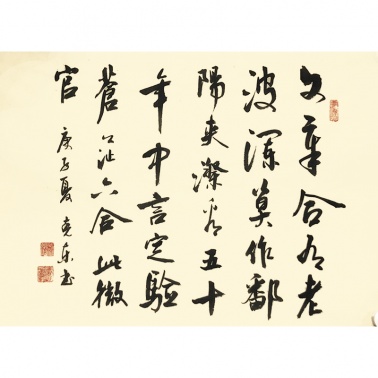 文章合有老
波瀾莫作鄱
陽夾漈看五十
年中言定驗
蒼茫六合此微
官
庚子夏 書